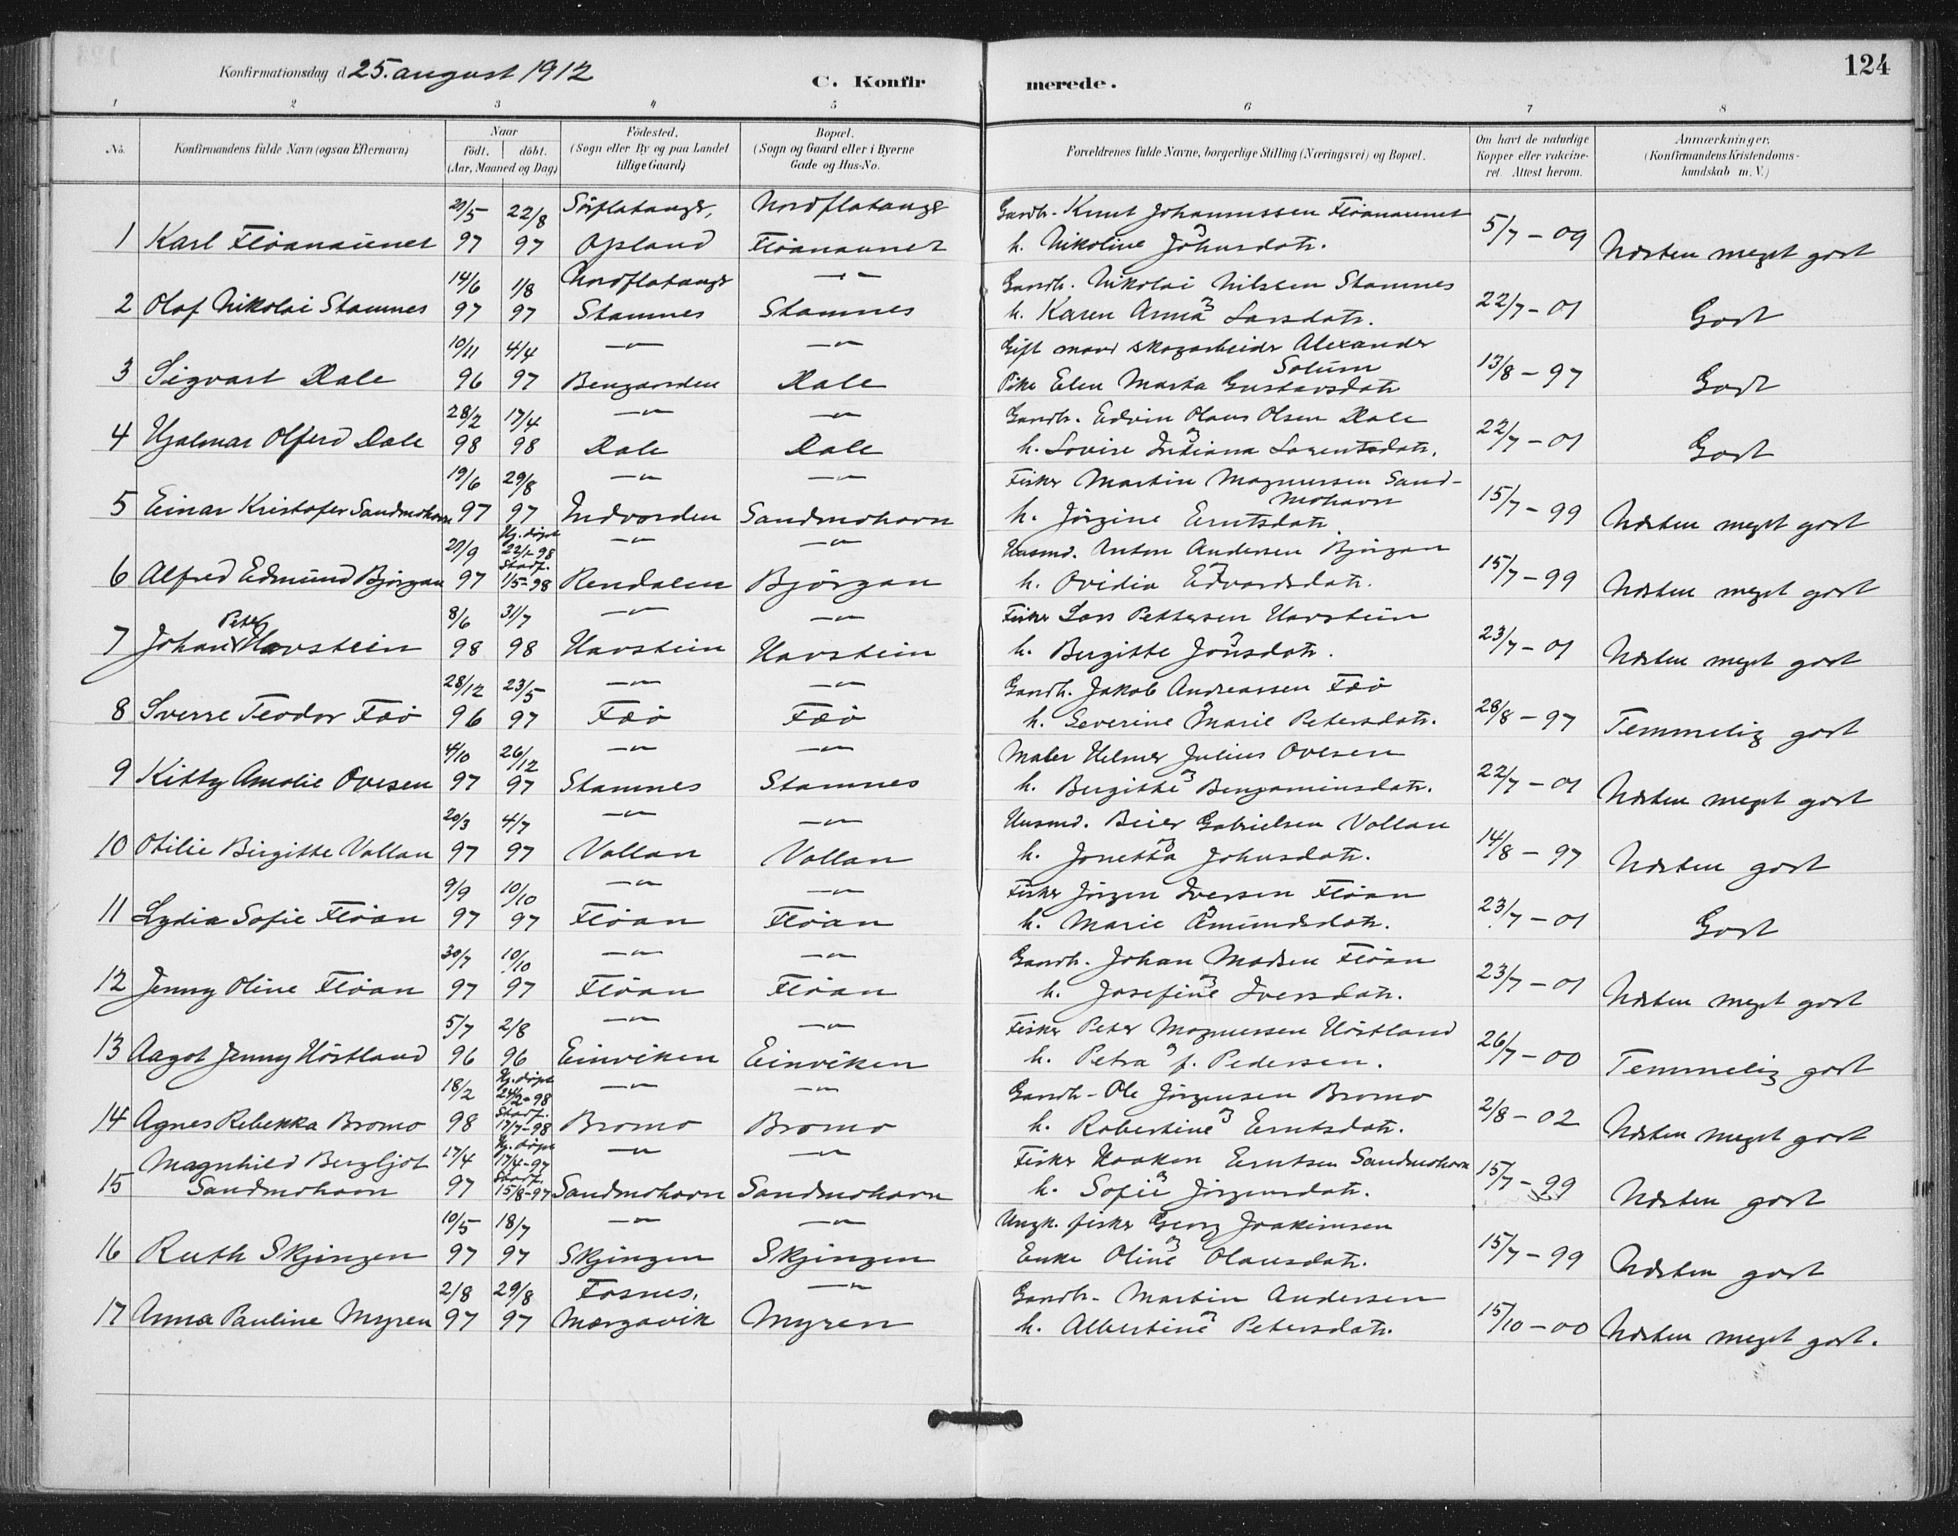 124
Konfirmationsdag d. 25. august 1912
C. Konfirmerede.
1 2 3 4 5 6 7 8
No. | Konfirmandens fulde Navn (ogsaa Efternavn) | Naar født. døbt. (Aar, Maaned og Dag) | Fødested. (Sogn eller By og paa Landet tillige Gaard) | Bopæl. (Sogn og Gaard eller i Byerne Gade og Hus-No. | Forældrenes fulde Navne, borgerlige Stilling (Næringsvei) og Bopæl. | Om havt de naturlige Kopper eller vakcineret. Attest herom. | Anmærkninger. (Konfirmandens Kristendomskundskab m. V.)
20/5 22/8 Sörflatanger, Nordflatanger Gaardb. Knut Johannessen Flöanaunet 5/7 - 09
1 Karl Flöanaunet 97 97 Opland Flöanaunet h. Nikoline Johnsdatr. Næsten meget godt
14/6 1/8 Nordflatanger —"— Gaardb. Nikolai Nilssen Stamnes 22/7 - 01
2 Olaf Nikolai Stamnes 97 97 Stamnes Stamnes h. Karen Anna Larsdatr. Godt
10/11 4/4 —"— —"— Gift mand skogarbeider Alexander Solum 13/8 - 97
3 Sigvart Dale 96 97 Bengaarden Dale Pike Elen Marta Gustavsdatr Godt
28/2 17/4 —"— —"— Gaardb. Edvin Olaus Olsen Dale 22/7 - 01
4 Hjalmar Olferd Dale 98 98 Dale Dale h. Lovise Indiana Lorentsdatr. Godt
19/6 29/8 —"— —"— Fisker Martin Magnussen Sandmohavn 15/7 - 99
5 Einar Kristofer Sandmohavn 97 97 Indvorden Sandmohavn h. Jörgine Erntsdatr. Næsten meget godt
20/9 Hj. döpt 22/1-98 —"— —"— Husmd. Anton Andersen Björgan 15/7 - 99
6 Alfred Edmund Björgan 97 Stadf. 1/5-98 Rendalen Björgan h. Ovidia Edvardsdatr. Næsten meget godt
8/6 31/7 —"— —"— Fisker Lars Pettersen Havstein 23/7 - 01
7 Johan Peter Havstein 98 98 Havstein Havstein h. Bergitte Jonsdatr. Næsten meget godt
28/12 23/5 —"— —"— Gaardb. Jakob Andreassen Faö 28/8 - 97
8 Sverre Teodor Faö 96 97 Faö Faö h. Severine Marie Petersdatr. Temmelig godt
4/10 26/12 —"— —"— Maler Helmer Julius Ovesen 22/7 - 01
9 Kitty Amalie Ovesen 97 97 Stamnes Stamnes h. Bergitte Bengaminsdatr. Næsten meget godt
20/3 4/7 —"— —"— Husmd. Beier Gabrielsen Vollan 14/8 - 97
10 Otilie Birgitte Vollan 97 97 Vollan Vollan h. Jonetta Johnsdatr. Næsten godt
9/9 10/10 —"— —"— Fisker Jörgen Iversen Flöan 23/7 - 01
11 Lydia Sofie Flöan 97 97 Flöan Flöan h. Marie Amundsdatr. Godt
30/7 10/10 —"— —"— Gaardb. Johan Madsen Flöan 23/7 - 01
12 Jenny Oline Flöan 97 97 Flöan Flöan h. Josefine Iversdatr. Næsten meget godt
5/7 2/8 —"— —"— Fisker Peter Magnussen Höstland 26/7 - 00
13 Aagot Jenny Höstland 96 96 Einviken Einviken h. Petra f. Pedersen. Temmelig godt
18/2 Hj. döpt 24/2-98 —"— —"— Gaardb. Ole Jörgensen Bromo 2/8 - 02
14 Agnes Rebekka Bromo 98 Stadf. 17/7-98 Bromo Bromo h. Robertine Erntsdatr. Næsten meget godt
Magnhild Bergljot 17/4 Hj. döpt 17/4-97 —"— —"— Fisker Haakon Erntsen Sandmohavn 15/7 - 99
15 Sandmohavn 97 Stadf. 15/8-97 Sandmohavn Sandmohavn h. Sofie Jörgensdatr. Næsten godt
10/5 18/7 —"— —"— Ungk. fisker Georg Joakimsen 15/7 - 99
16 Ruth Skjingen 97 97 Skjingen Skjingen Enke Oline Olausdatr. Næsten godt
2/8 29/8 Fosnes, —"— Gaardb. Martin Andersen 15/10 - 00
17 Anna Pauline Myren 97 97 Morgavik Myren h. Albertine Petersdatr. Næsten meget godt.